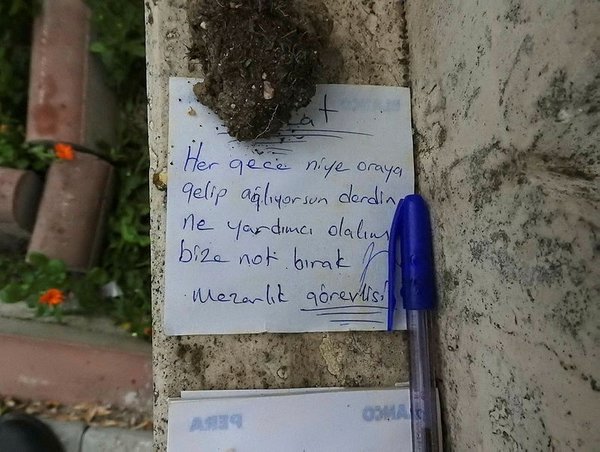 Her gece niye oraya
gelip ağlıyorsun derdin
ne yardımcı olalım
bize not bırak
mezarlık görevlisi
BLANCO
PERA